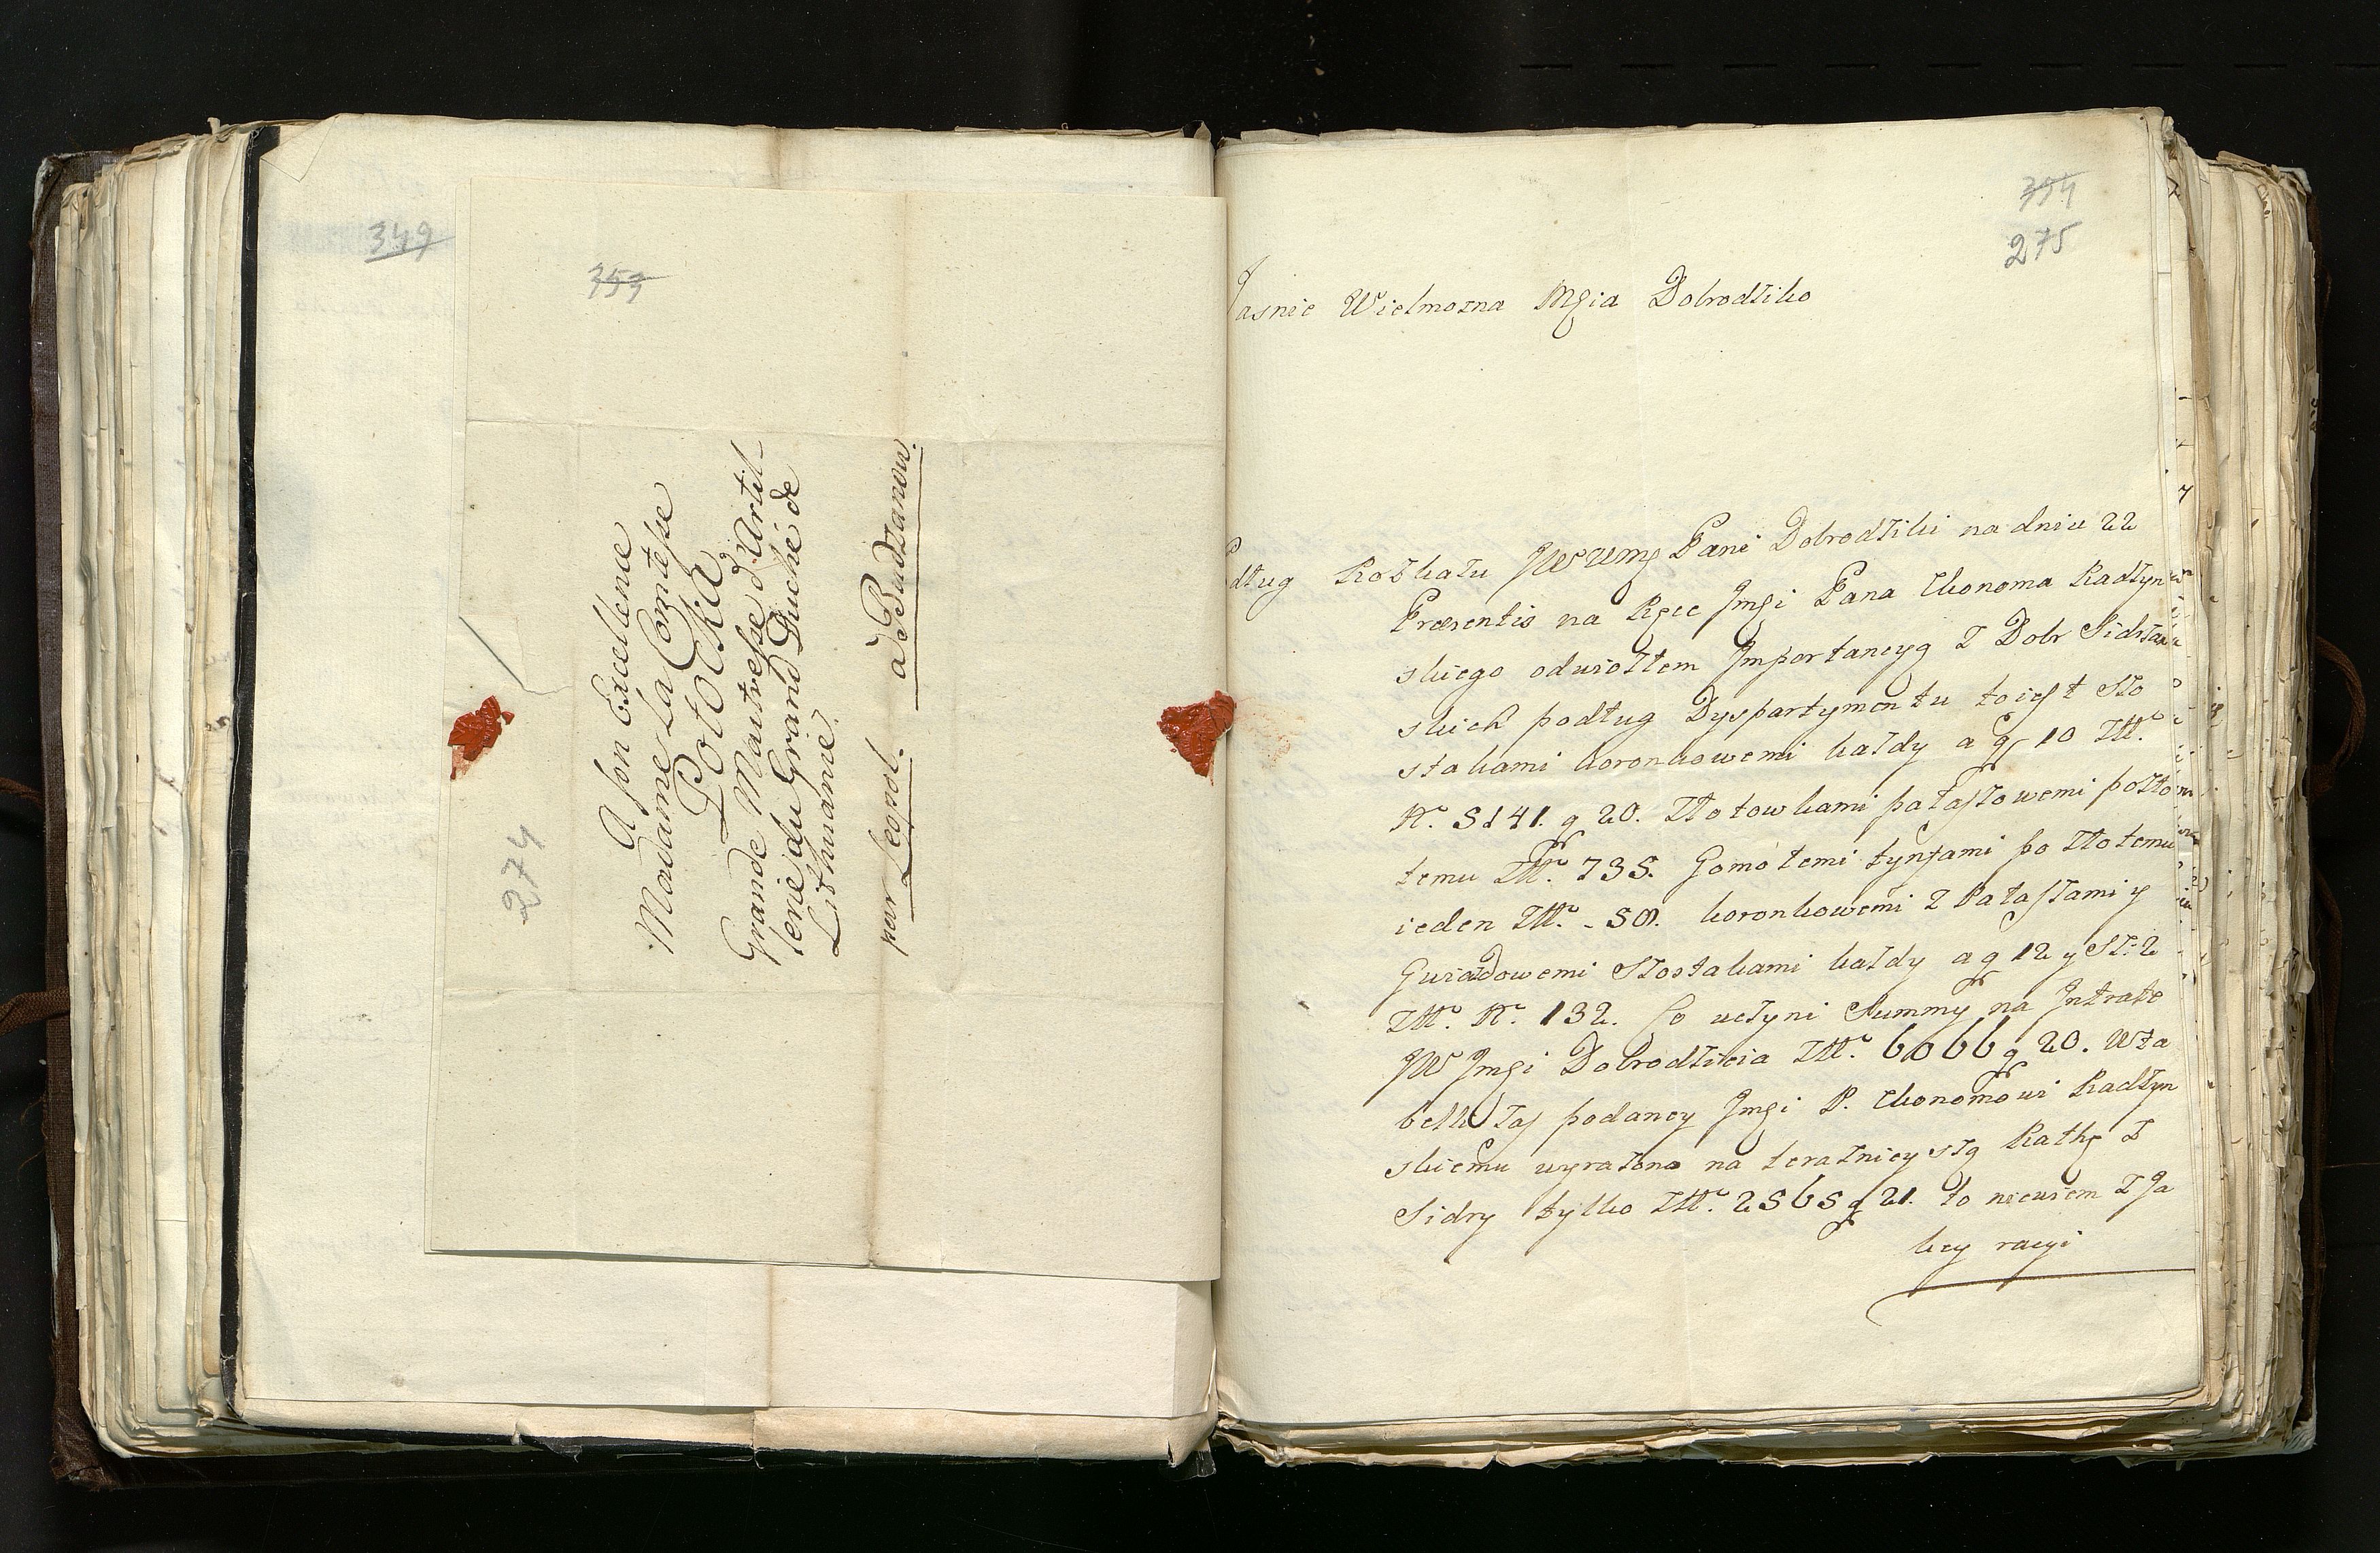 349
353
274
A son Excellence
Madame La Comtesse
Potocka
Grande Maitresse d'Artil-
lerie du Grand Duché de
Lithuanie.
par Leopol. à Budzanow.
354
275
Jasnie Wielmozna Mgia Dobrodziko
Podług Rozkazu JWWMę Pani Dobrodziki na dniu 22
Præsentis na Ręce Jmgi Pana Ekonoma Radzyn
skiego odwiozłem Importancyą z Dobr Sidrzan
skich podług Dyspartymentu toiest szo
stakami koronkowemi kazdy a g 10 Złł.
N. 5141. g 20. Złotowkami pałaszowemi po zło
temu Złł. 735. Gomołemi tynfami po złotemu
ieden Złł. - 58. koronkowemi z Pałaszami y
Gwiazdowemi szostakami kazdy a g 12 y sz: 2
Złł. N. 132. Co uczyni Summy na Intratę
JW Jmgi Dobrodzieia Złł. 6066 g 20. W ta
belli zaś podaney Jmgi P. Ekonomowi Radzyn
skiemu wyrazono na teraznieyszą Rathę z
Sidry tylko Złł. 2565 g 21. to niewiem z Ja
kiey racyi